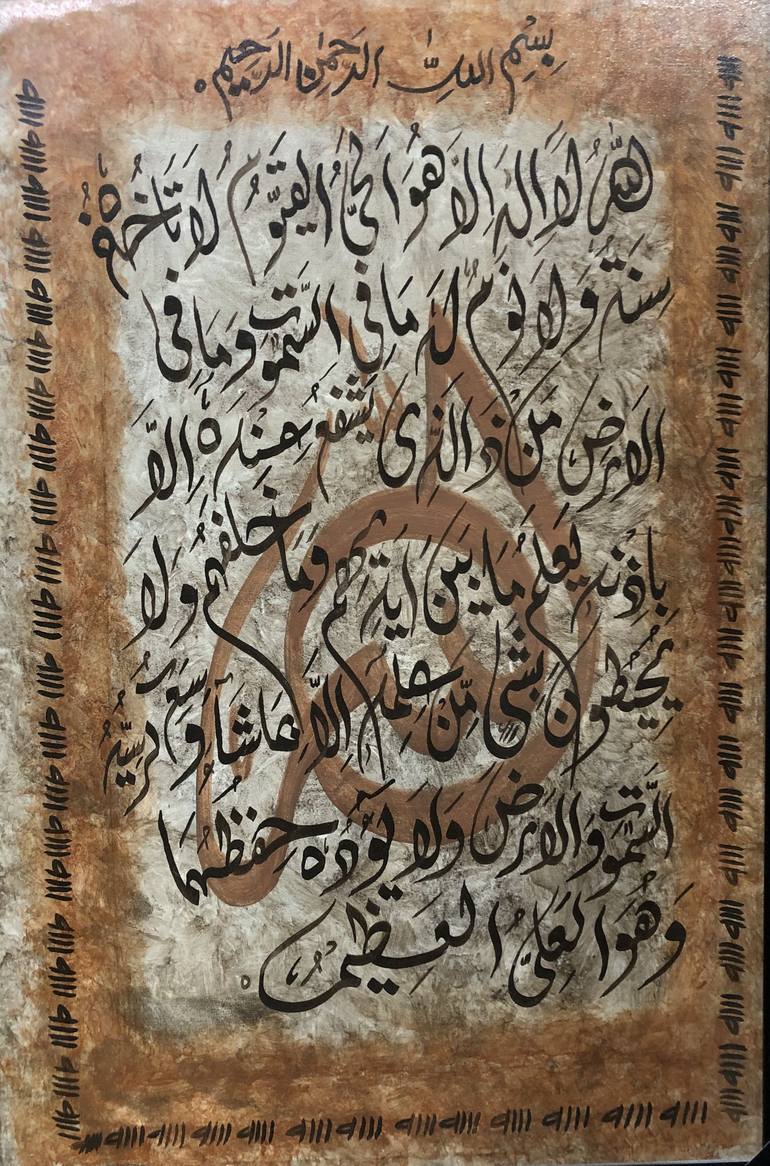 بِسْمِ اللهِ الرَّحْمٰنِ الرَّحِيْمِ
اللهُ لَا اِلٰهَ اِلَّا هُوَ الْحَىُّ الْقَيُّوْمُ لَا تَاْخُذُهٗ
سِنَةٌ وَّلَا نَوْمٌ لَهٗ مَا فِى السَّمٰوٰتِ وَمَا فِى
الْاَرْضِ مَنْ ذَالَّذِىْ يَشْفَعُ عِنْدَهٗ اِلَّا
بِاِذْنِهٖ يَعْلَمُ مَا بَيْنَ اَيْدِيْهِمْ وَمَا خَلْفَهُمْ وَلَا
يُحِيْطُوْنَ بِشَىْءٍ مِّنْ عِلْمِهٖ اِلَّا بِمَا شَآءَ وَسِعَ كُرْسِيُّهُ
السَّمٰوٰتِ وَالْاَرْضَ وَلَا يَؤُدُهٗ حِفْظُهُمَا
وَهُوَ الْعَلِىُّ الْعَظِيْمُ